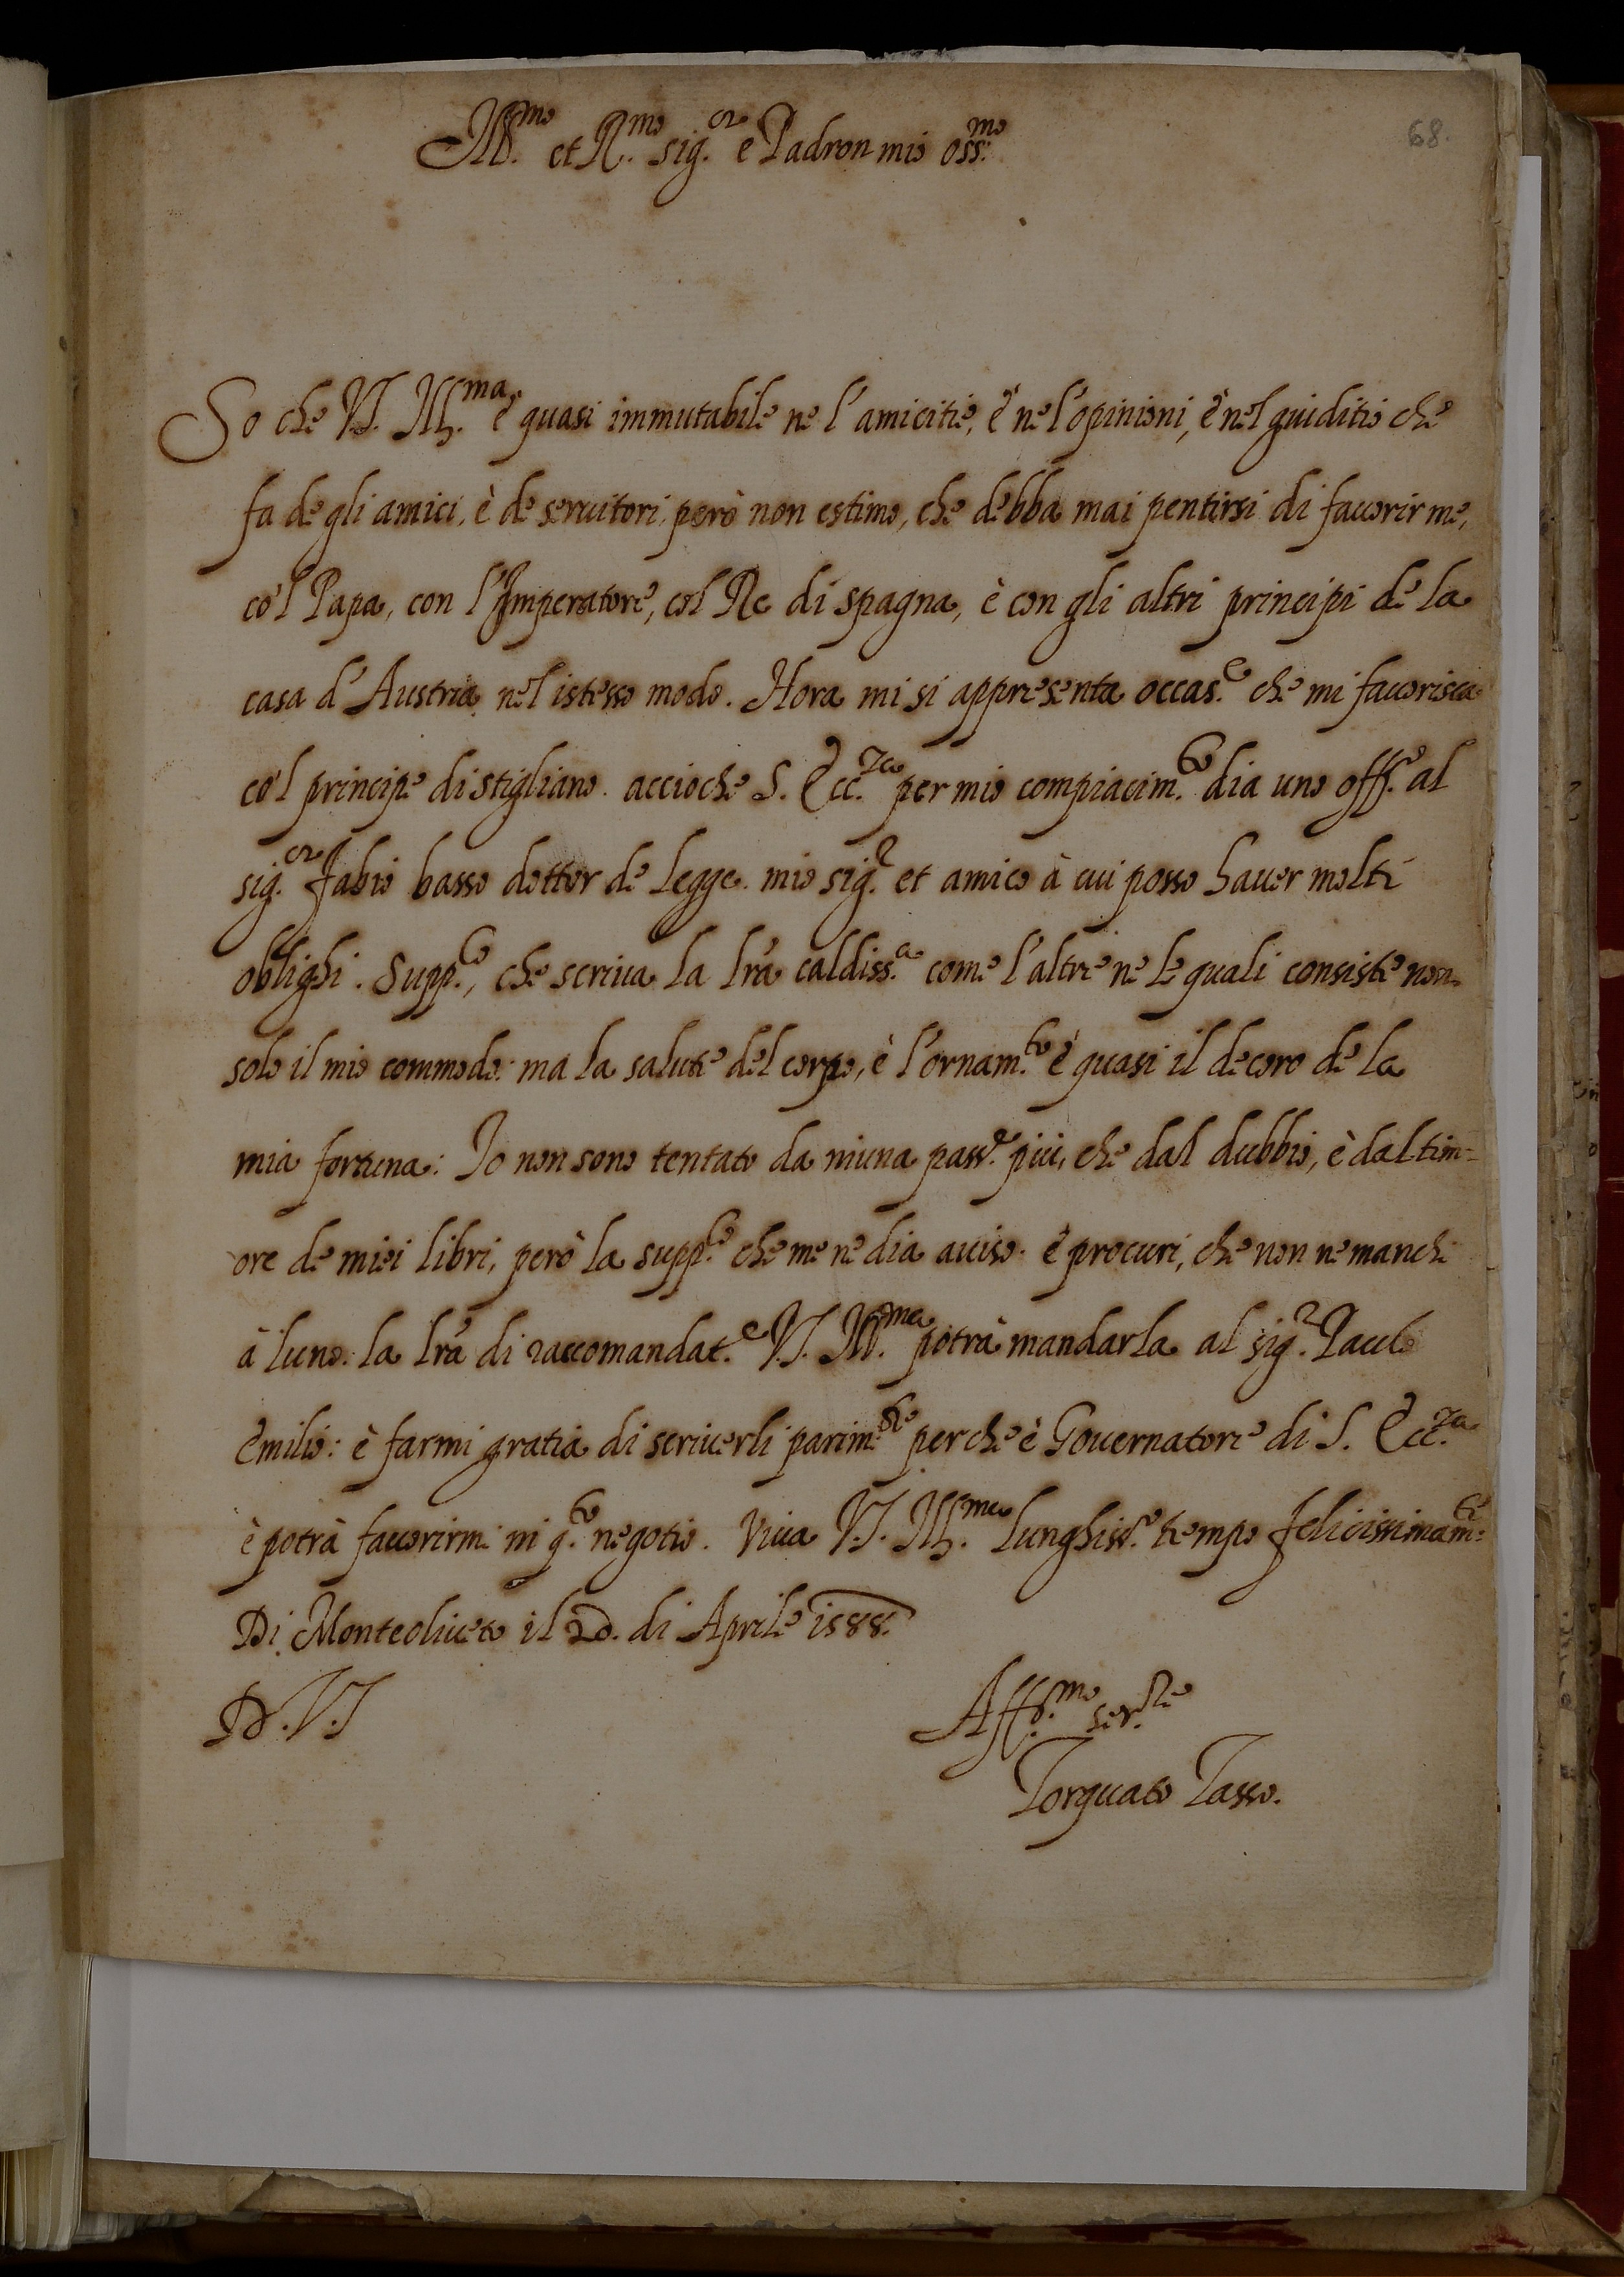 Ill.mo et R.mo sig.or e Padron mio oss.mo
68.
So che V.S. Ill.ma è quasi immutabile ne l'amicitie, è ne l'opinioni, è nel giuditio che
fa de gli amici, è de servitori, però non estimo, che debba mai pentirsi di favorirme,
co'l Papa, con l'Imperatore, col Re di spagna, è con gli altri principi de la
casa d'Austria nel istesso modo. Hora mi si appresenta occas.e che mi favorisca
co'l principe di stigliano. accioche S. Ecc.za per mio compiacim.to dia uno off.o al
sig.or fabio basso dottor de legge. mio sig.r et amico à cui posso haver molti
oblighi. Supp.co, che scriva la lr̃a caldiss.a come l'altre ne le quali consiste non
solo il mio commodo: ma la salute del corpo, è l'ornam.to è quasi il decoro de la
mia fortuna: Io non sono tentato da niuna pass.e più, che dal dubbio, è dal tim=
ore de miei libri, però la supp.co che me ne dia aviso. è procuri, che non ne manchi
à luno. la lr̃a di raccomandat.e V.S. Ill.ma potrà mandarla al sig.r Paulo
Emilio: è farmi gratia di scriverli parim.te perche è Governatore di S. Ecc.za
è potrà favorirmi in q.to negotio. Viva V.S. Ill.ma lunghiss.o tempo felicissimam.te
Di Monteoliveto il 20. di Aprile 1588.
D.V.S
Aff.mo ser.re
Torquato Tasso.